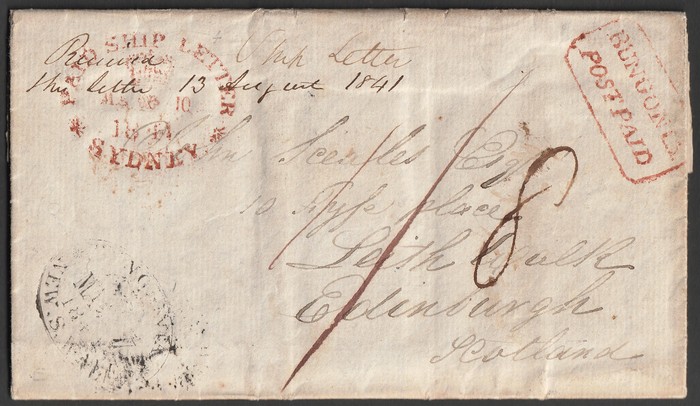 PAID SHIP LETTER
10
1841
* SYDNEY *
Ship Letter
Received
this letter 13 August 1841
BUNGONIA
POST PAID
John Esqr
10 Fyfe place
Leith Walk
Edinburgh
Scotland
8
NEW. S. WALES